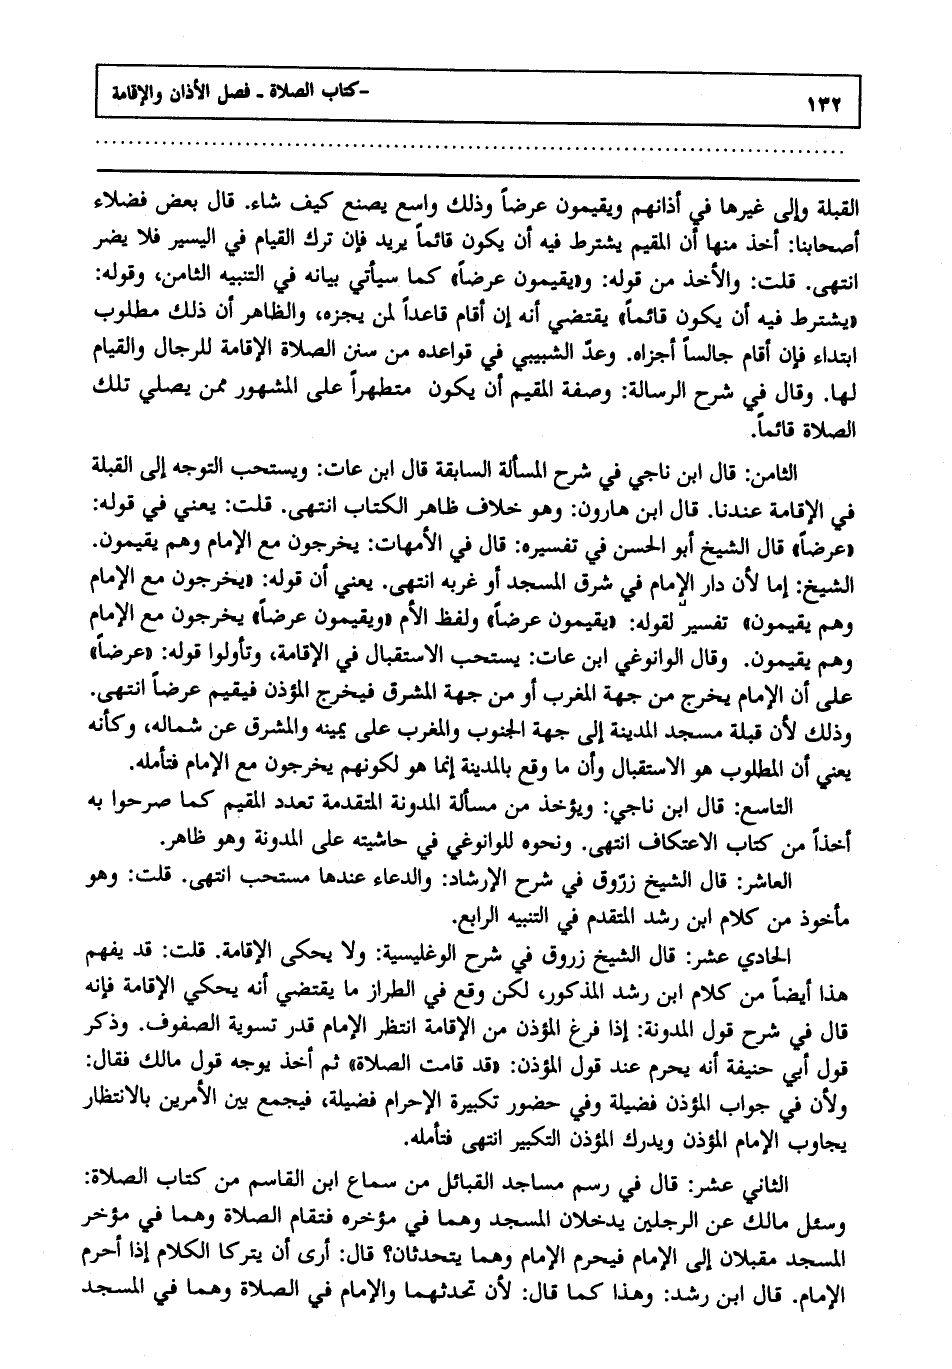 ١٣٢ -كتاب الصلاة ـ فصل الأذان والإقامة
القبلة وإلى غيرها في أذانهم ويقيمون عرضاً وذلك واسع يصنع كيف شاء. قال بعض فضلاء
أصحابنا: أخذ منها أن المقيم يشترط فيه أن يكون قائماً يريد فإن ترك القيام في اليسير فلا يضر
انتهى. قلت: والأخذ من قوله: و«يقيمون عرضاً» كما سيأتي بيانه في التنبيه الثامن، وقوله:
«يشترط فيه أن يكون قائماً» يقتضي أنه إن أقام قاعداً لمن يجزه، والظاهر أن ذلك مطلوب
ابتداء فإن أقام جالساً أجزاه. وعدّ الشبيبي في قواعده من سنن الصلاة الإقامة للرجال والقيام
لها. وقال في شرح الرسالة: وصفة المقيم أن يكون متطهراً على المشهور ممن يصلي تلك
الصلاة قائماً.
الثامن: قال ابن ناجي في شرح المسألة السابقة قال ابن عات: ويستحب التوجه إلى القبلة
في الإقامة عندنا. قال ابن هارون: وهو خلاف ظاهر الكتاب انتهى. قلت: يعني في قوله:
«عرضاً» قال الشيخ أبو الحسن في تفسيره: قال في الأمهات: يخرجون مع الإمام وهم يقيمون.
الشيخ: إما لأن دار الإمام في شرق المسجد أو غربه انتهى. يعني أن قوله: «يخرجون مع الإمام
وهم يقيمون» تفسير لقوله: «يقيمون عرضاً» ولفظ الأم «ويقيمون عرضاً» يخرجون مع الإمام
وهم يقيمون. وقال الوانوغي ابن عات: يستحب الاستقبال في الإقامة، وتأولوا قوله: «عرضاً»
على أن الإمام يخرج من جهة المغرب أو من جهة المشرق فيخرج المؤذن فيقيم عرضاً انتهى.
وذلك لأن قبلة مسجد المدينة إلى جهة الجنوب والمغرب على يمينه والمشرق عن شماله، وكأنه
يعني أن المطلوب هو الاستقبال وأن ما وقع بالمدينة إنما هو لكونهم يخرجون مع الإمام فتأمله.
التاسع: قال ابن ناجي: ويؤخذ من مسألة المدونة المتقدمة تعدد المقيم كما صرحوا به
أخذاً من كتاب الاعتكاف انتهى. ونحوه للوانوغي في حاشيته على المدونة وهو ظاهر.
العاشر: قال الشيخ زرّوق في شرح الإرشاد: والدعاء عندها مستحب انتهى. قلت: وهو
مأخوذ من كلام ابن رشد المتقدم في التنبيه الرابع.
الحادي عشر: قال الشيخ زروق في شرح الوغليسية: ولا يحكى الإقامة. قلت: قد يفهم
هذا أيضاً من كلام ابن رشد المذكور، لكن وقع في الطراز ما يقتضي أنه يحكي الإقامة فإنه
قال في شرح قول المدونة: إذا فرغ المؤذن من الإقامة انتظر الإمام قدر تسوية الصفوف. وذكر
قول أبي حنيفة أنه يحرم عند قول المؤذن: «قد قامت الصلاة» ثم أخذ يوجه قول مالك فقال:
ولأن في جواب المؤذن فضيلة وفي حضور تكبيرة الإحرام فضيلة، فيجمع بين الأمرين بالانتظار
يجاوب الإمام المؤذن ويدرك المؤذن التكبير انتهى فتأمله.
الثاني عشر: قال في رسم مساجد القبائل من سماع ابن القاسم من كتاب الصلاة:
وسئل مالك عن الرجلين يدخلان المسجد وهما في مؤخره فتقام الصلاة وهما في مؤخر
المسجد مقبلان إلى الإمام فيحرم الإمام وهما يتحدثان؟ قال: أرى أن يتركا الكلام إذا أحرم
الإمام. قال ابن رشد: وهذا كما قال: لأن تحدثهما والإمام في الصلاة وهما في المسجد